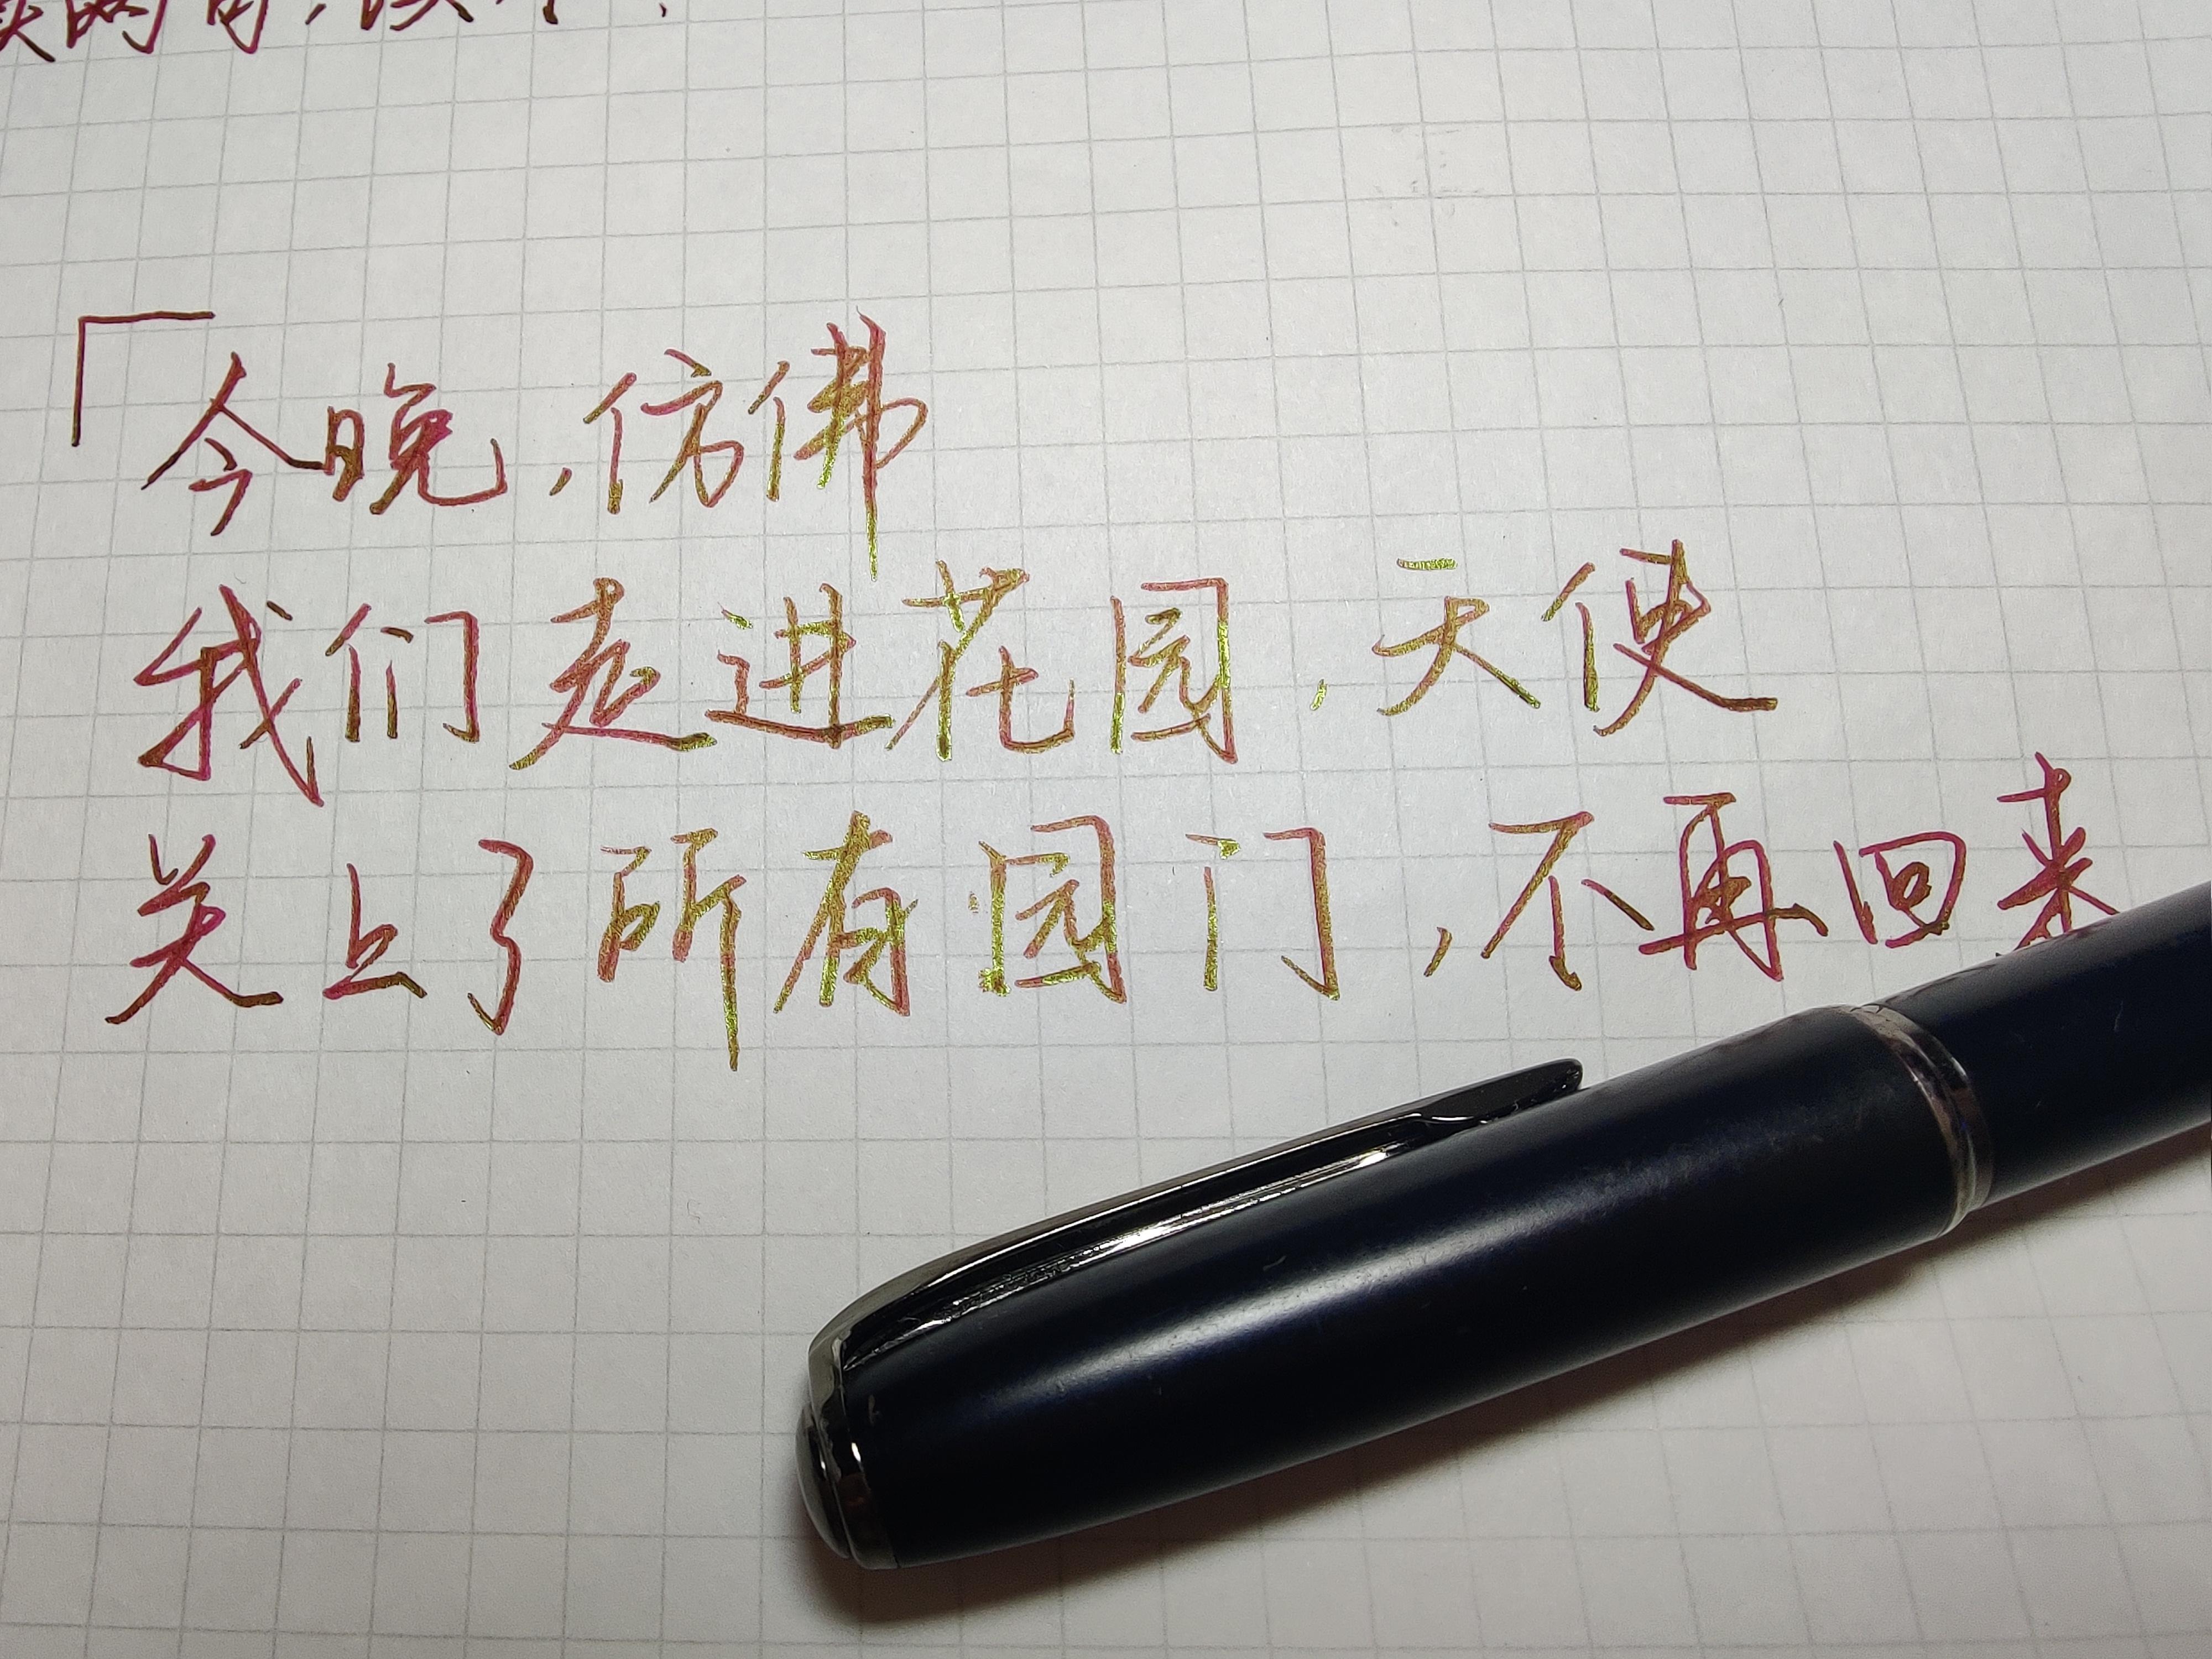 「今晚,仿佛
我们走进花园,天使
关上了所有园门,不再回来